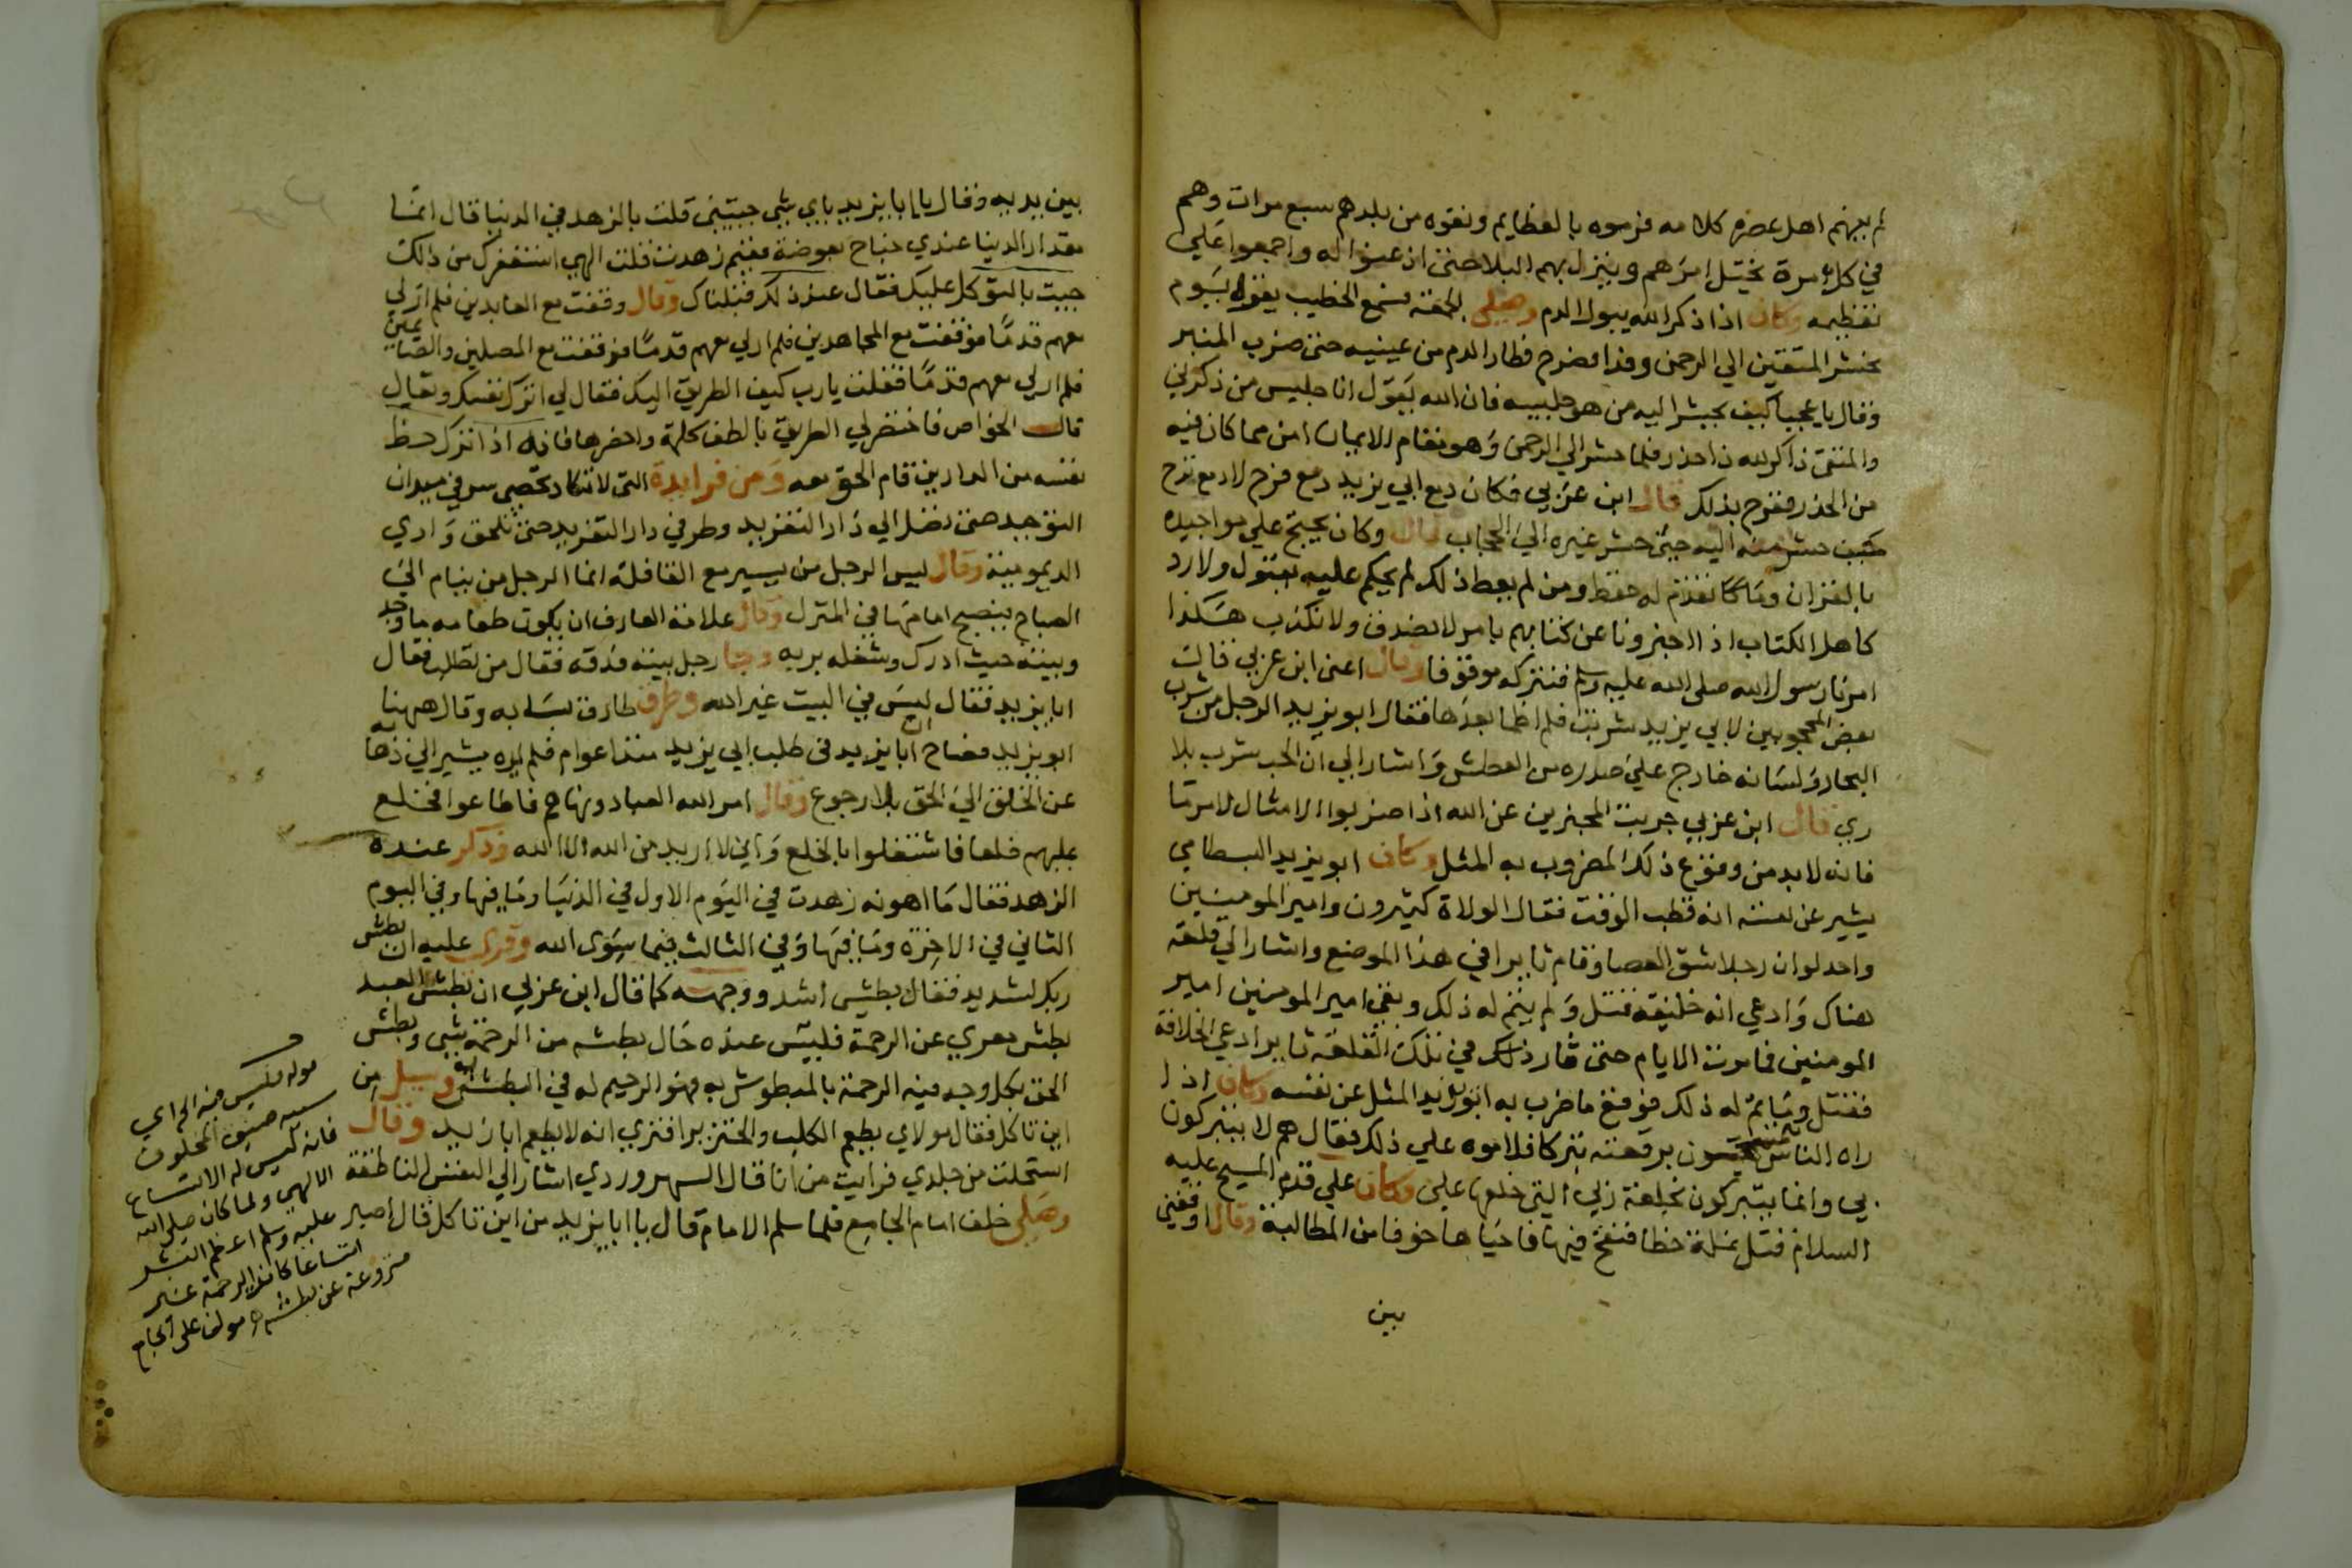 لم يفهم اهل عصره كلامه فرموه بالعظايم ونفوه من بلدهم سبع مرات وهم
في كل مرة يختل امرهم وينزل بهم البلا حتى اذعنوا له واجمعوا على
تعظيمه وكان اذا ذكر الله يبول الدم وصلى الجمعة فسمع الخطيب يقول يوم
نحشر المتقين الي الرحمن وفدا فصرخ فطار الدم من عينيه حتى ضرب المنبر
وقال يا عجبا كيف يحشر اليه من هو جليسه فان الله يقول انا جليس من ذكرني
والمتقي ذاكر لله ذا حذر فلما حشر الي الرحمن وهو مقام الامان امن مما كان فيه
من الحذر ففرح بذلك قال ابن عربي فكان دمع ابي يزيد دمع فرح لا دمع ترح
كيف حشر منه اليه حين حشر غيره الي الحجاب قال وكان يحتج علي مواجيده
بالقران وما كان تقدم له حفظ ومن لم يعط ذلك لم يحكم عليه بقبول ولا رد
كاهل الكتاب اذا اخبرونا عن كتابهم بامر لا نصدق ولا نكذب هكذا
امرنا رسول الله صلى الله عليه وسلم فنتركه موقوفا وقال اعني ابن عربي قالت
بعض المحجوبين لابي يزيد شربت فلم اظما بعدها فقال ابو يزيد الرجل من شرب
البحار ولسانه خارج على صدره من العطش واشار الي ان الحب شرب بلا
ري قال ابن عربي جربت المخبرين عن الله اذا ضربوا الامثال لامر ما
فانه لا بد من وقوع ذلك المضروب به المثل وكان ابو يزيد البسطامي
يشير عن نفسه انه قطب الوقت فقال الولاة كثيرون وامير المومنين
واحد لو ان رجلا شق العصا وقام ثايرا في هذا الموضع واشار الي قلعة
هناك وادعي انه خليفة قتل ولم يتم له ذلك وبقي امير المومنين امير
المومنين فما مرت الايام حتى ثار ذلك في تلك القلعة ثاير ادعي الخلافة
فقتل وما تم له ذلك فوقع ما ضرب به ابو يزيد المثل عن نفسه وكان اذا
راه الناس يتمسحون بمرقعته تبركا فلاموه علي ذلك فقال هم لا يتبركون
بي وانما يتبركون بخلعة ربي التي خلعها علي وكان علي قدم المسيح عليه
السلام قتل نملة خطا فنفخ فيها فاحياها خوفا من المطالبة وقال اوقفني
بين
بين يديه وقال يا ابا يزيد باي شي جيتني قلت بالزهد في الدنيا قال انما
مقدار الدنيا عندي جناح بعوضة ففيم زهدت فقلت الهي استغفرك من ذلك
جيت بالتوكل عليك فقال عند ذلك قبلناك وقال وقفت مع العابدين فلم ار لي
معهم قدما فوقفت مع المجاهدين فلم ار لي معهم قدما فوقفت مع المصلين والصايمين
فلم ار لي معهم قدما فقلت يا رب كيف الطريق اليك فقال لي اترك نفسك وتعال
قال الخواص فاختصر لي الطريق بالطف كلمة واخصرها فانه اذا ترك حظ
نفسه من الدارين قام الحق معه ومن فرايده التي لا تكاد تحصي سر في ميدان
التوحيد حتى تصل الي دار التفريد وطر في دار التفريد حتى تلحق وادي
الديمومية وقال ليس الرجل من يسير مع القافلة انما الرجل من ينام الي
الصباح فيصبح امامها في المنزل وقال علامة العارف ان يكون طعامه ما وجد
وبيته حيث ادرك وشغله بربه وجا رجل بيته فدقه فقال من تطلب فقال
ابا يزيد فقال ليس في البيت غير الله وطرق طارق بابه وقال ههنا
ابو يزيد فصاح ان ابا يزيد في طلب ابي يزيد منذ اعوام فلم يره يشير الي ذهابه
عن الخلق الي الحق بلا رجوع وقال امر الله العباد ونهاهم فاطاعوا فخلع
عليهم خلعا فاشتغلوا بالخلع واني لا اريد من الله الا الله وذكر عنده
الزهد فقال ما اهونه زهدت في اليوم الاول في الدنيا وما فيها وفي اليوم
الثاني في الاخرة وما فيها وفي الثالث فيما سوى الله وقرى عليه ان بطش
ربك لشديد فقال بطشي اشد ووجهه كما قال ابن عربي ان بطش العبد
بطش معري عن الرحمة فليس عنده حال بطشه من الرحمة شي وبطش
الحق بكل وجه فيه الرحمة بالمبطوش به فهو الرحيم له في البطش به وسيل من
اين تاكل فقال مولاي يطعم الكلب والخنزير افتري انه لا يطعم ابا يزيد وقال
انسلخت من جلدي فرايت من انا قال السهروردي اشار الي النفس الناطقة
وصلي خلف امام الجامع فلما سلم الامام قال يا ابا يزيد من اين تاكل قال اصبر
قوله فليس فيه الخ اي
سببه ضيق المخلوق
فانه ليس له الاتساع
الالهي ولما كان صلى الله
عليه وسلم اعظم البشر
اتساعا كانت الرحمة غير
منزوعة عن بطشه